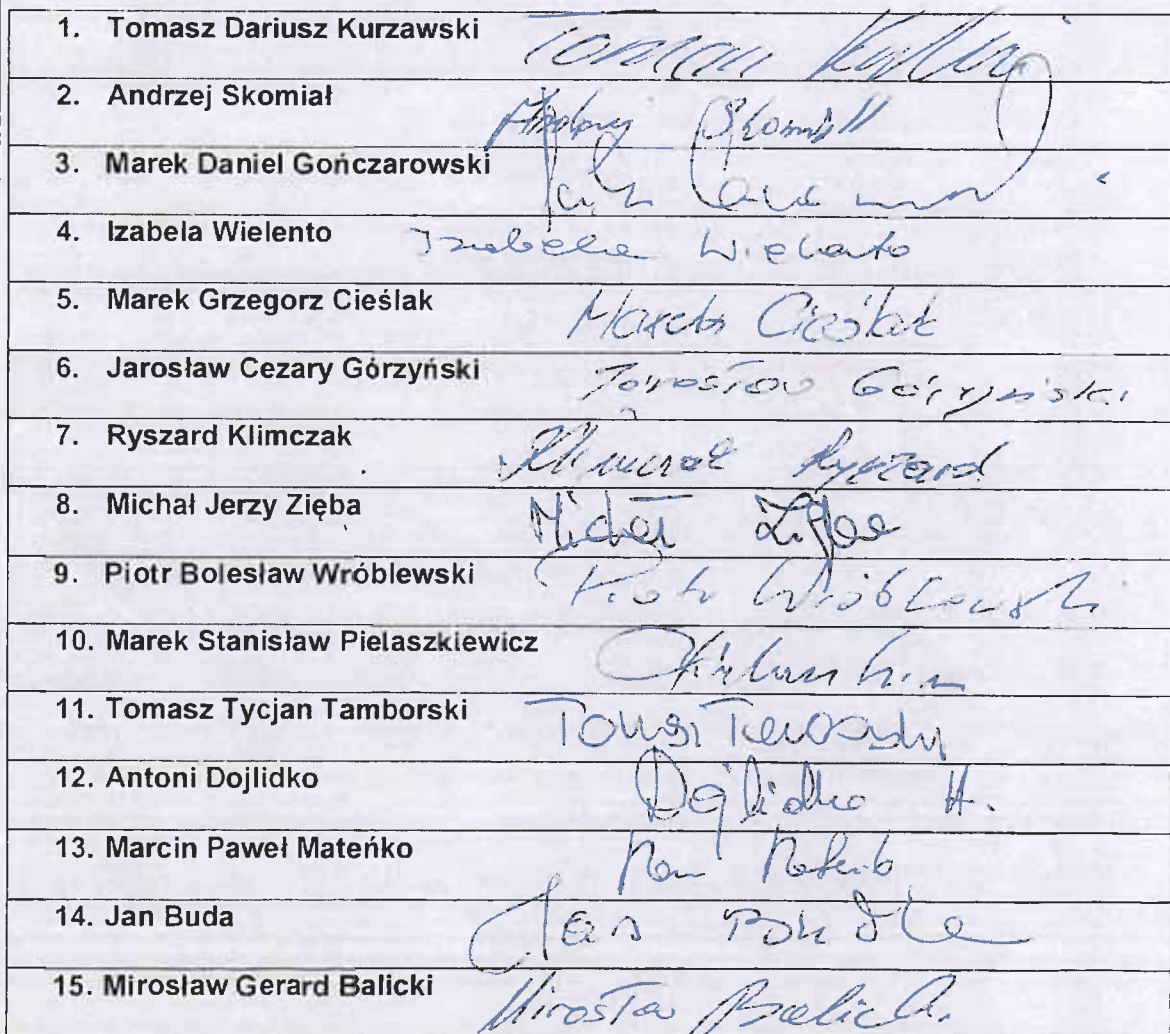 1. Tomasz Dariusz Kurzawski Tomasz
2. Andrzej Skomiał
3. Marek Daniel Gończarowski
4. Izabela Wielento Izabela Wielento
5. Marek Grzegorz Cieślak Marek Cieślak
6. Jarosław Cezary Górzyński Jarosław Górzyński
7. Ryszard Klimczak Klimczak Ryszard
8. Michał Jerzy Zięba Michał Zięba
9. Piotr Bolesław Wróblewski Piotr Wróblewski
10. Marek Stanisław Pielaszkiewicz
11. Tomasz Tycjan Tamborski
12. Antoni Dojlidko Dojlidko A.
13. Marcin Paweł Mateńko
14. Jan Buda Jan Buda
15. Mirosław Gerard Balicki Mirosław Balicki